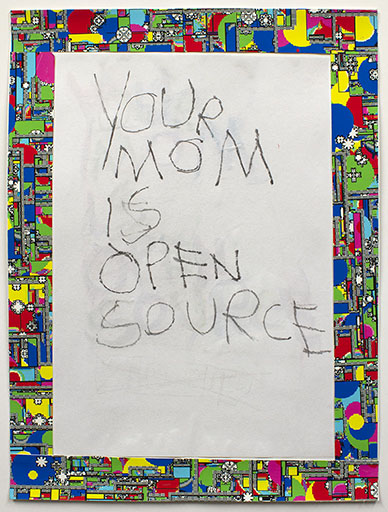 YOUR
MOM
IS
OPEN
SOURCE